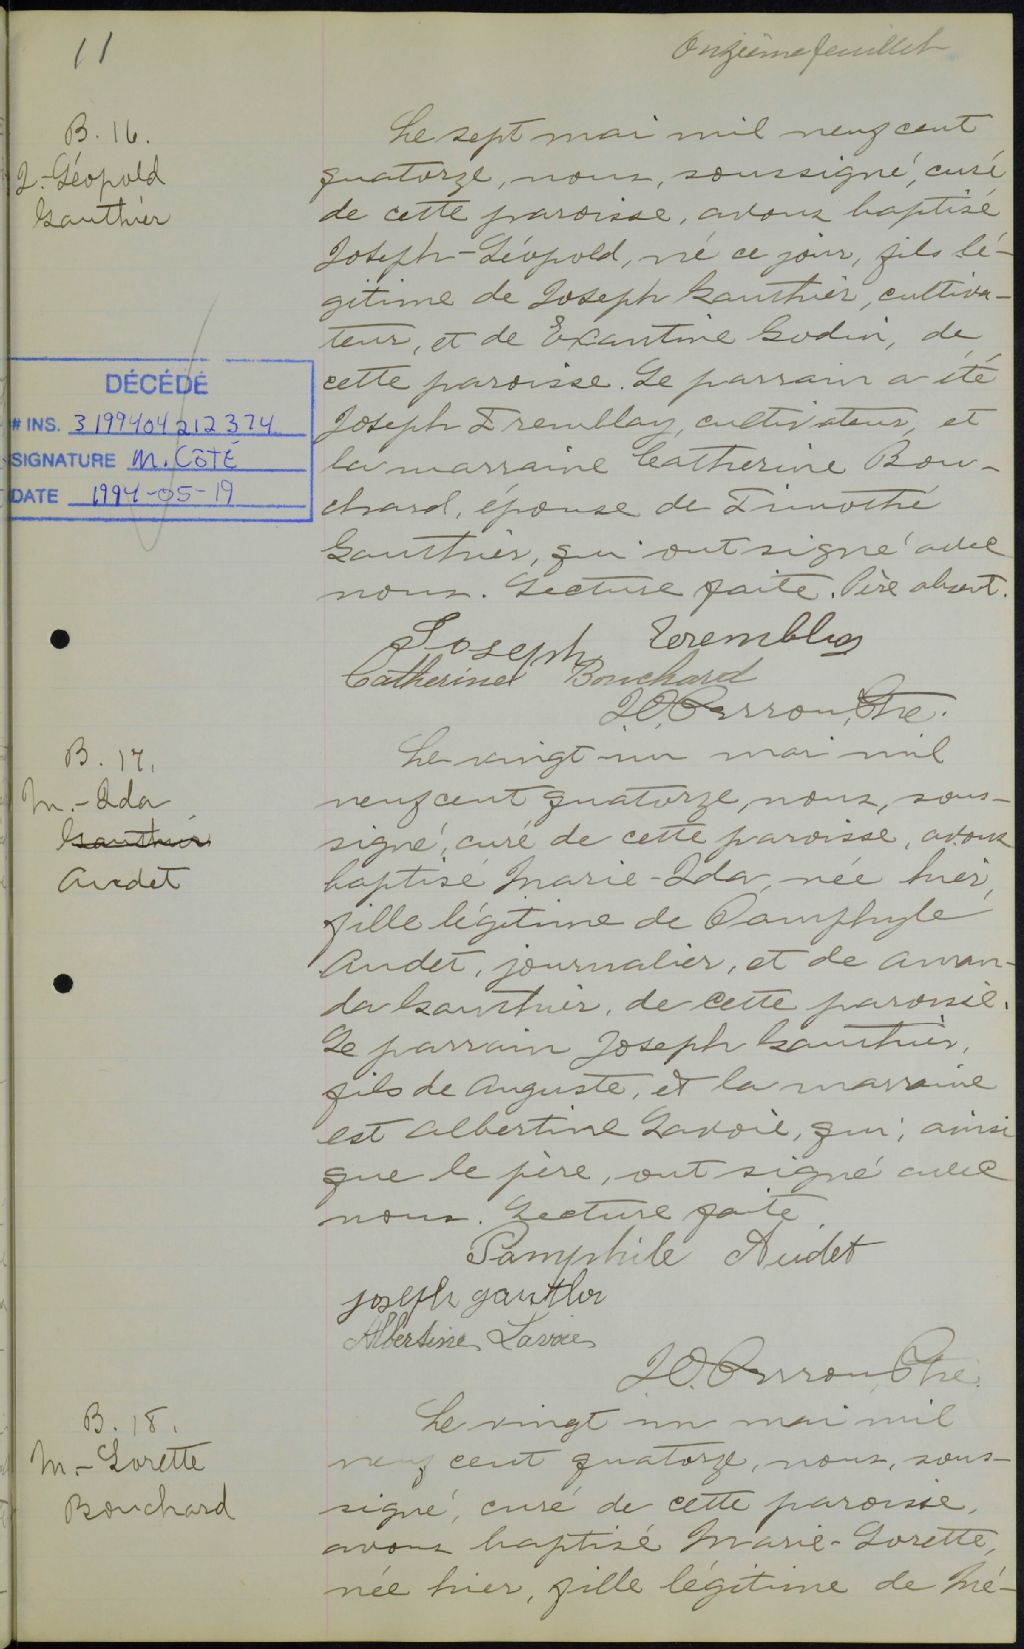 11
Onzième feuillet
B. 16.
J.-Léopold
Gauthier
Le sept mai mil neuf cent
quatorze, nous, soussigné, curé
de cette paroisse, avons baptisé
Joseph-Léopold, né ce jour, fils lé-
gitime de Joseph Gauthier, cultiva-
teur, et de Exantine Godin, de
cette paroisse. Le parrain a été
Joseph Tremblay, cultivateur, et
la marraine Catherine Bou-
chard, épouse de Timothé
Gauthier, qui ont signé avec
nous. Lecture faite. Père absent.
DÉCÉDÉ
# INS. 3199404212374
SIGNATURE M. CÔTÉ
DATE 1994-05-19
Joseph Tremblay
Catherine Bouchard
J.O. Perron, Ptre.
B. 17.
M.-Ida
Gauthier
Audet
Le vingt-un mai mil
neuf cent quatorze, nous, sous-
signé, curé de cette paroisse, avons
baptisé Marie-Ida, née hier,
fille légitime de Pamphyle
Audet, journalier, et de Aman-
da Gauthier, de cette paroisse.
Le parrain Joseph Gauthier,
fils de Auguste, et la marraine
est Albertine Lavoie, qui, ainsi
que le père, ont signé avec
nous. Lecture faite.
Pamphile Audet
joseph gauthier
Albertine Lavoie
J.O. Perron, Ptre.
B. 18.
M.-Lorette
Bouchard
Le vingt un mai mil
neuf cent quatorze, nous, sous-
signé, curé de cette paroisse,
avons baptisé Marie-Lorette,
née hier, fille légitime de Mé-